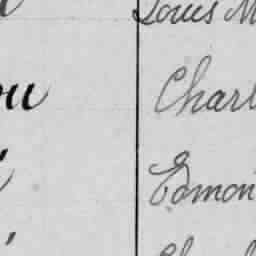 Louis M
ou Charl
Edmon